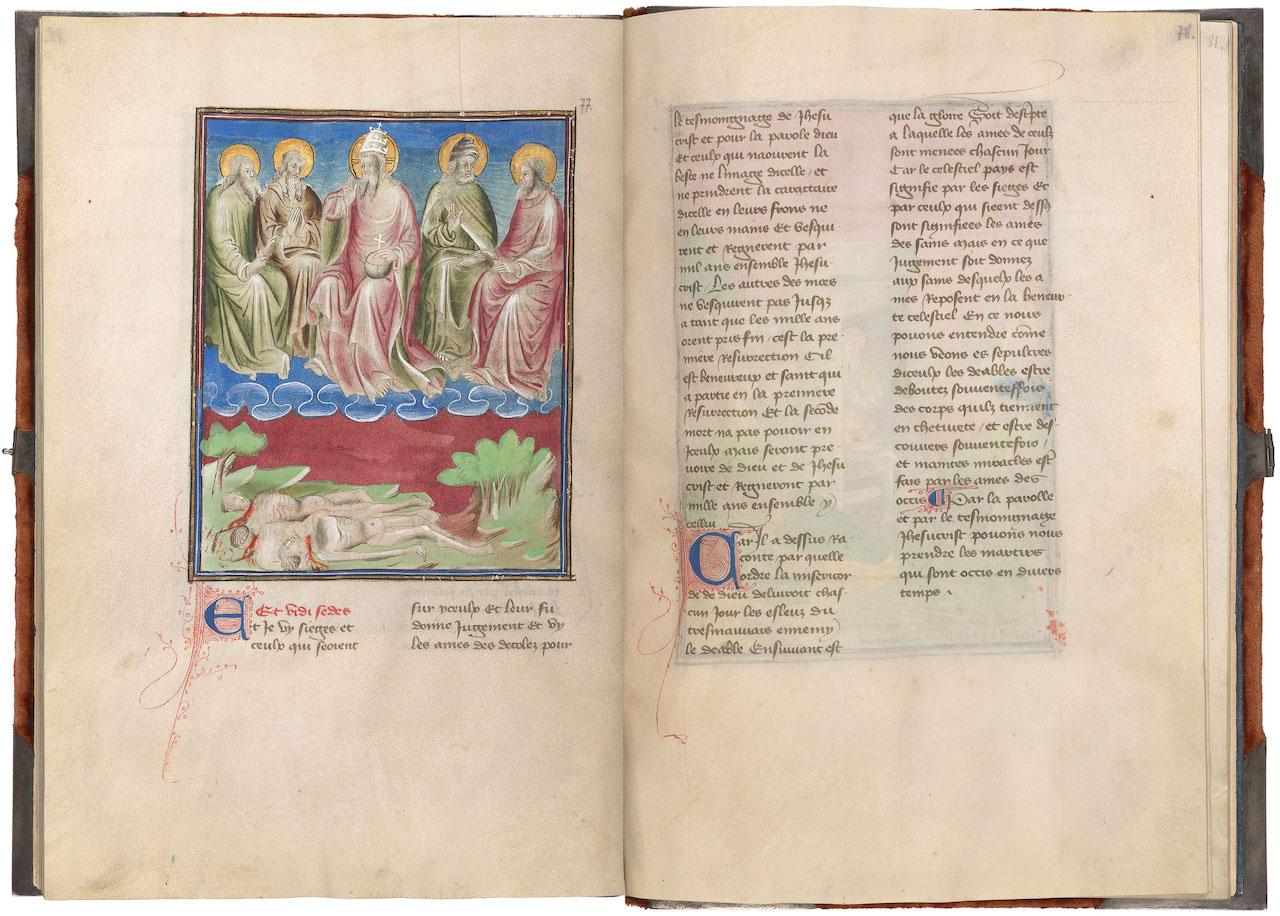 77.
Et vidi sedes
Et Je vy sieges et
ceulx qui seoient
sur yceulx et leur fu
donne Jugement Et vy
les ames des decolez pour
78.
81.
le tesmoingnage de Jhesu
crist et pour la parole dieu
Et ceulx qui naourent la
beste ne limage dicelle / et
ne prindrent la carattaire
dicelle en leurs frons ne
en leurs mains Et vesqui
rent et Regnerent par
mil ans ensemble Jhesu
crist / Les autres des mors
ne vesquirent pas Jusqz
a tant que les mille ans
orent pris fin / cest la pre
miere Resurrection Cil
est beneureux et saint qui
a partie en la premiere
Resurrection Et la secōde
mort na pas pouoir en
Jceulx Mais seront pre
voire de dieu et de Jhesu
crist et Regneront par
mille ans ensemble y
cellui
Car il a dessus Ra
conte par quelle
ordre la misericor
de de dieu delivroit chas
cun Jour les esleuz du
tresmauvais ennemy
le deable Ensuivant est
que la gloire Soit descripte
a laquelle les ames de ceulz
sont menees chascun Jour
Car le celestiel pays est
signifie par les sieges Et
par ceulx qui sieent dessꝯ
sont signifiees les ames
des sains Mais en ce que
Jugement soit donnez
aux sains desquelx les a
mes Reposent en la beneur
te celestiel En ce nous
pouons entendre cōme
nous veons es sepulcres
diceulx les deables estre
deboutez souventeffois
des corps quilz tiennent
en chetivete / et estre des
couvers souventefois /
et maintes miracles estre
fais par les ames des
occis Par la parolle
et par le tesmoingnage
Jhesucrist pouons nous
prendre les martirs
qui sont occis en divers
temps .